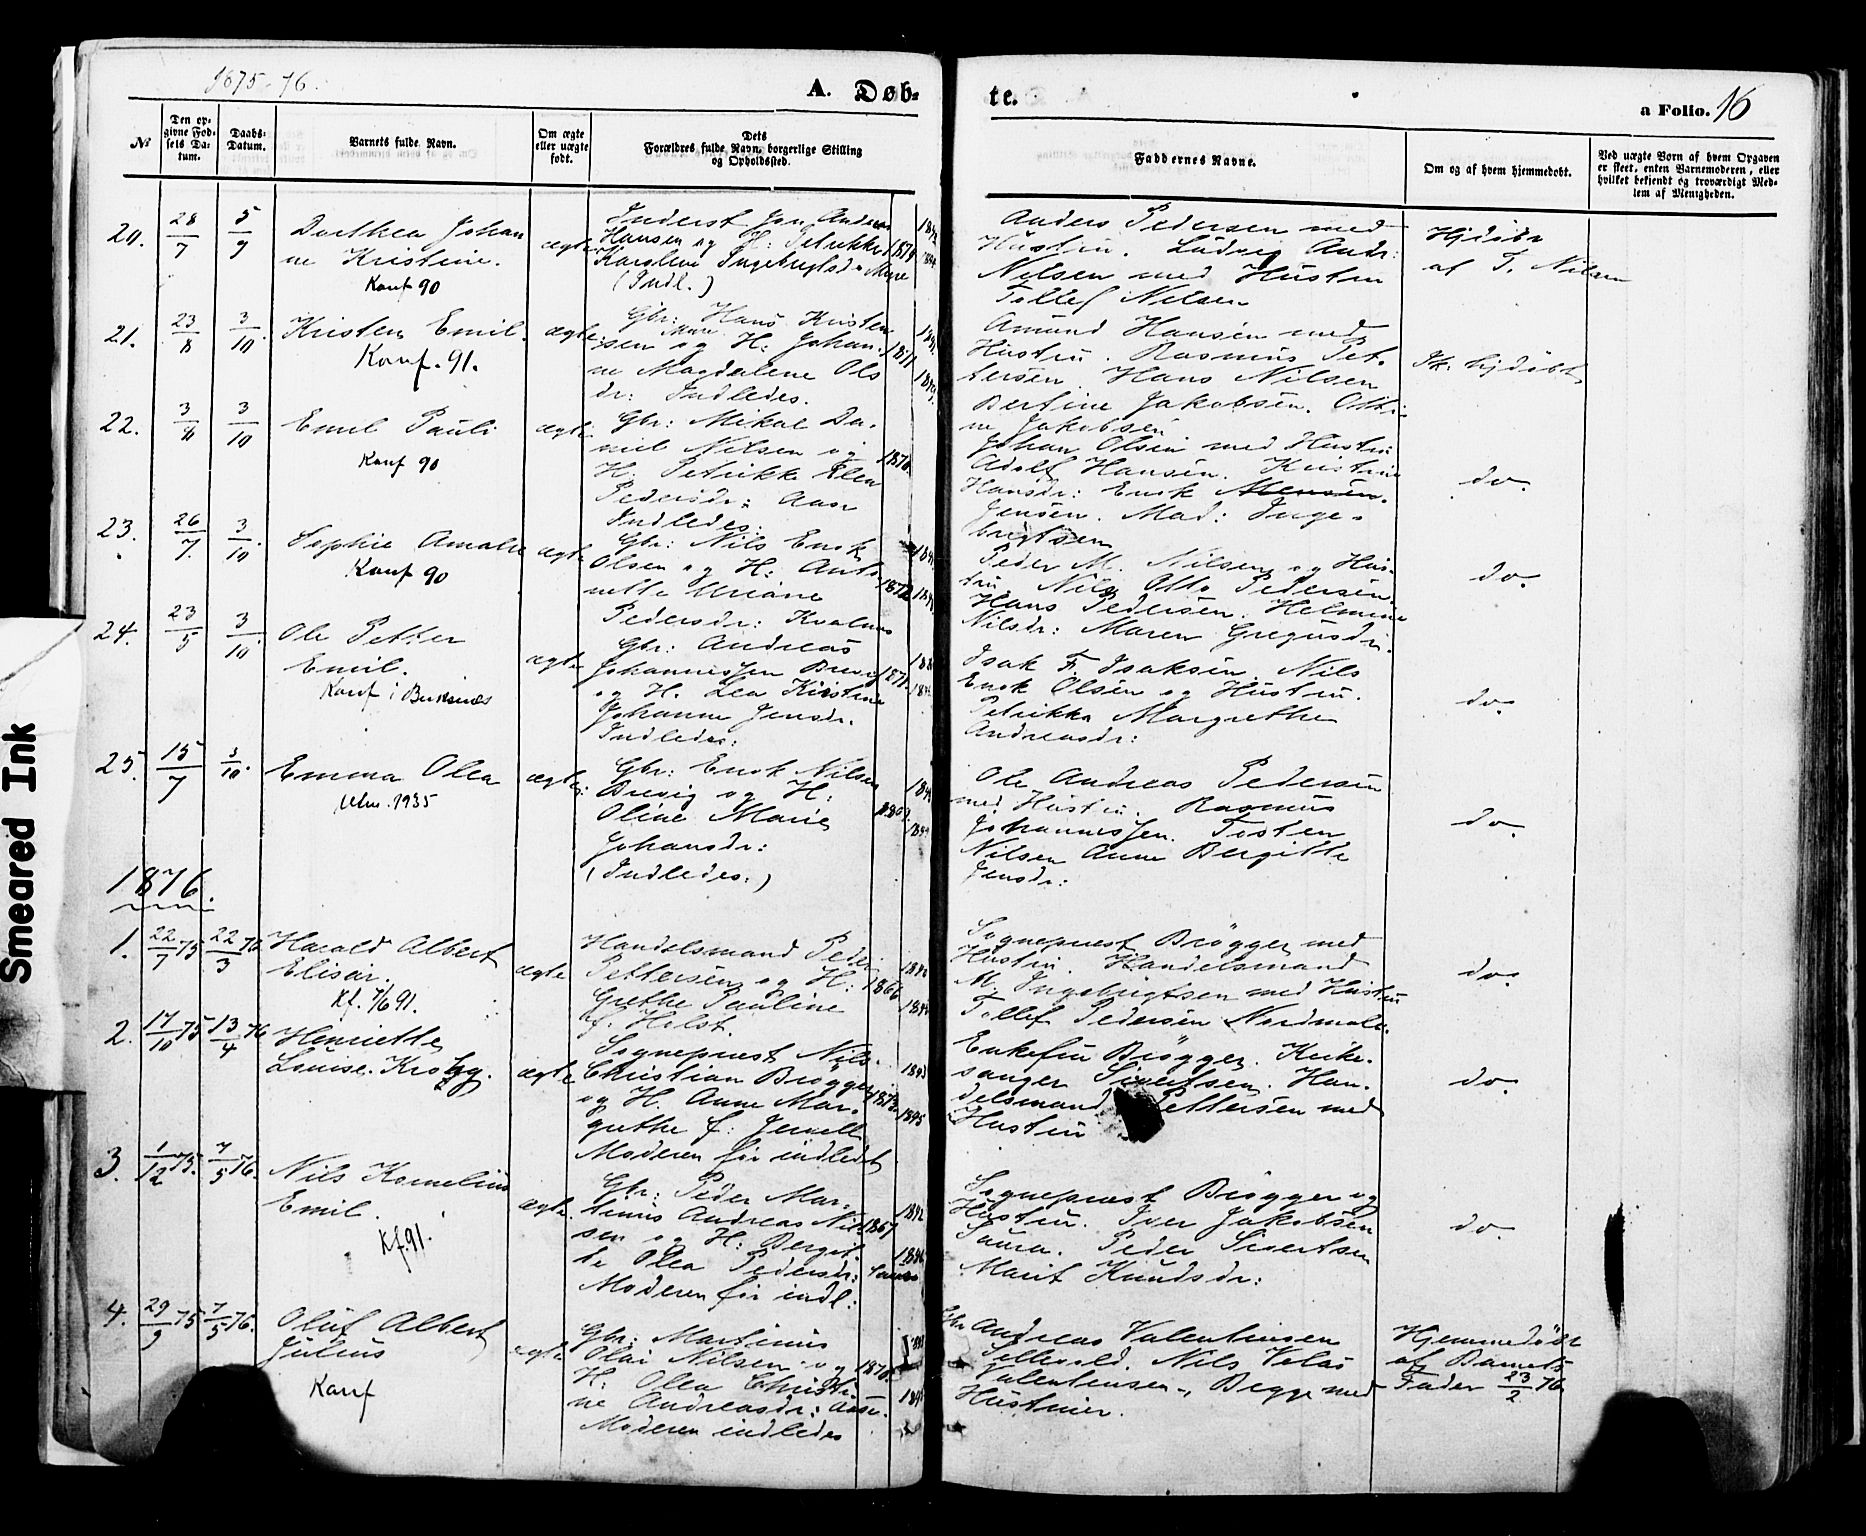 1875-76.
A. Døb-
te.
a Folio. 16
№
Den op-
givne Fød-
sels Da-
tum.
Daabs-
Datum.
Barnets fulde Navn.
Om ægte
eller uægte
født.
Dets
Forældres fulde Navn, borgerlige Stilling
og Opholdssted.
Faddernes Navne.
Om og af hvem hjemmedøbt.
Ved uægte Børn af hvem Opgaven
er skeet, enten Barnemoderen, eller
hvilket bekjendt og troværdigt Med-
lem af Menigheden.
20. 28/7 5/9 Dorthea Johan
ne Kristine.
Konf 90
ægte
Inderst Jon Anders
Hansen og H: Petrikke
Karoline Ingebrigtsd: Myre
(Indl.)
1874
Anders Pedersen med
Hustru. Ludvig Andr:
Nilsen med Hustru
Tollef Nilsen
Hjdøbt
af T. Nilsen
21. 23/8 3/10 Kristen Emil.
Konf. 91.
ægte
Gbr: Hans Kristen
sen og H: Johan-
ne Magdalene Ols
dr: Indledes.
1871
Amund Hansen med
Hustru. Rasmus Pet-
tersen. Hans Nilsen
Bertine Jakobsen. Otti-
ne Jakobsen
Ik: hjdøbt
22. 3/8 3/10 Emil Pauli
Konf 90
ægte
Gbr: Mikal Da-
niel Nilsen og
H: Petrikke Elen
Pedersdr: Aase
Indledes:
1870
Johan Olsen med Hustru
Adolf Hansen. Kristine
Hansdr: Enok
Jensen. Mad: Inge-
brigtsen
do.
23. 26/7 3/10 Sophie Amalie
Konf 90
ægte
Gbr: Nils Enok
Olsen og H: Anto-
nette Uriane
Pedersdr: Kvalnes
1872
Peder M. Nilsen og Hus-
tru Nils Otto Pedersen.
Hans Pedersen. Helmine
Nilsdr: Maren Gregusdr.
do.
24. 23/5 3/10 Ole Petter
Emil.
Konf i Buksnes
ægte
Gbr: Andreas
Johannessen Brevig
og H. Lea Kirstine
Johanne Jensdr.
Indledes:
1871.
Isak F. Isaksen Nils
Enok Olsen og Hustru.
Petrikka Margrethe
Andreasdr:
do.
25. 15/7 3/10. Emma Olea
Utm. 1935
ægte:
Gbr: Enok Nilsen
Brevig og H:
Oline Marie
Johansdr:
(Indledes.)
Ole Andreas Pedersen
med Hustru. Rasmus
Johannessen. Tosten
Nilsen Anne Bergitte
Jensdr:
do.
1876.
1. 22/7 75 22/3 76 Harald Albert
Elisar.
Kf. 7/6 91.
ægte
Handelsmand Peder
Pettersen og H:
Grethe Pauline
f. Holst.
1866
Sognepræst Brøgger med
Hustru. Handelsmand
M. Ingebrigtsen med Hustru
Tollef Pedersen Nordmale.
do.
2. 17/10 75 13/4 76 Henriette
Louise Krohg.
ægte
Sognepræst Nils
Christian Brøgger
og H. Anne Mar-
grethe f: Jervell
Moderen før indledt
1873
1845
Enkefru Brøgger. Kirke-
sanger Sivertsen. Han-
delsmand Pettersen med
Hustru
do.
3. 1/12 75. 7/5 76. Nils Kornelius
Emil.
Kf. 91.
ægte.
Gbr: Peder Mar-
tinus Andreas Nil-
sen og H: Bergit-
te Olea Pedersdr:
Moderen før indl:
1867
1842
Sognepræst Brøgger og
Hustru. Iver Jakobsen
Saura. Peder Sivertsen
Marit Knudsdr:
do.
4. 29/9 75 7/5 76. Oluf Albert
Julius
Konf
ægte
Gbr: Martinus
Olai Nilsen og
H: Olea Christi-
ne Andreasdr: Aase.
Moderen indledes
1870.
Gbr Andreas Valentinsen
Sellevold. Nils Velas
Valentinsen, Begge med
Hustruer.
Hjemmedøbt
af Barnets
Fader 23/2 76
Smeared Ink